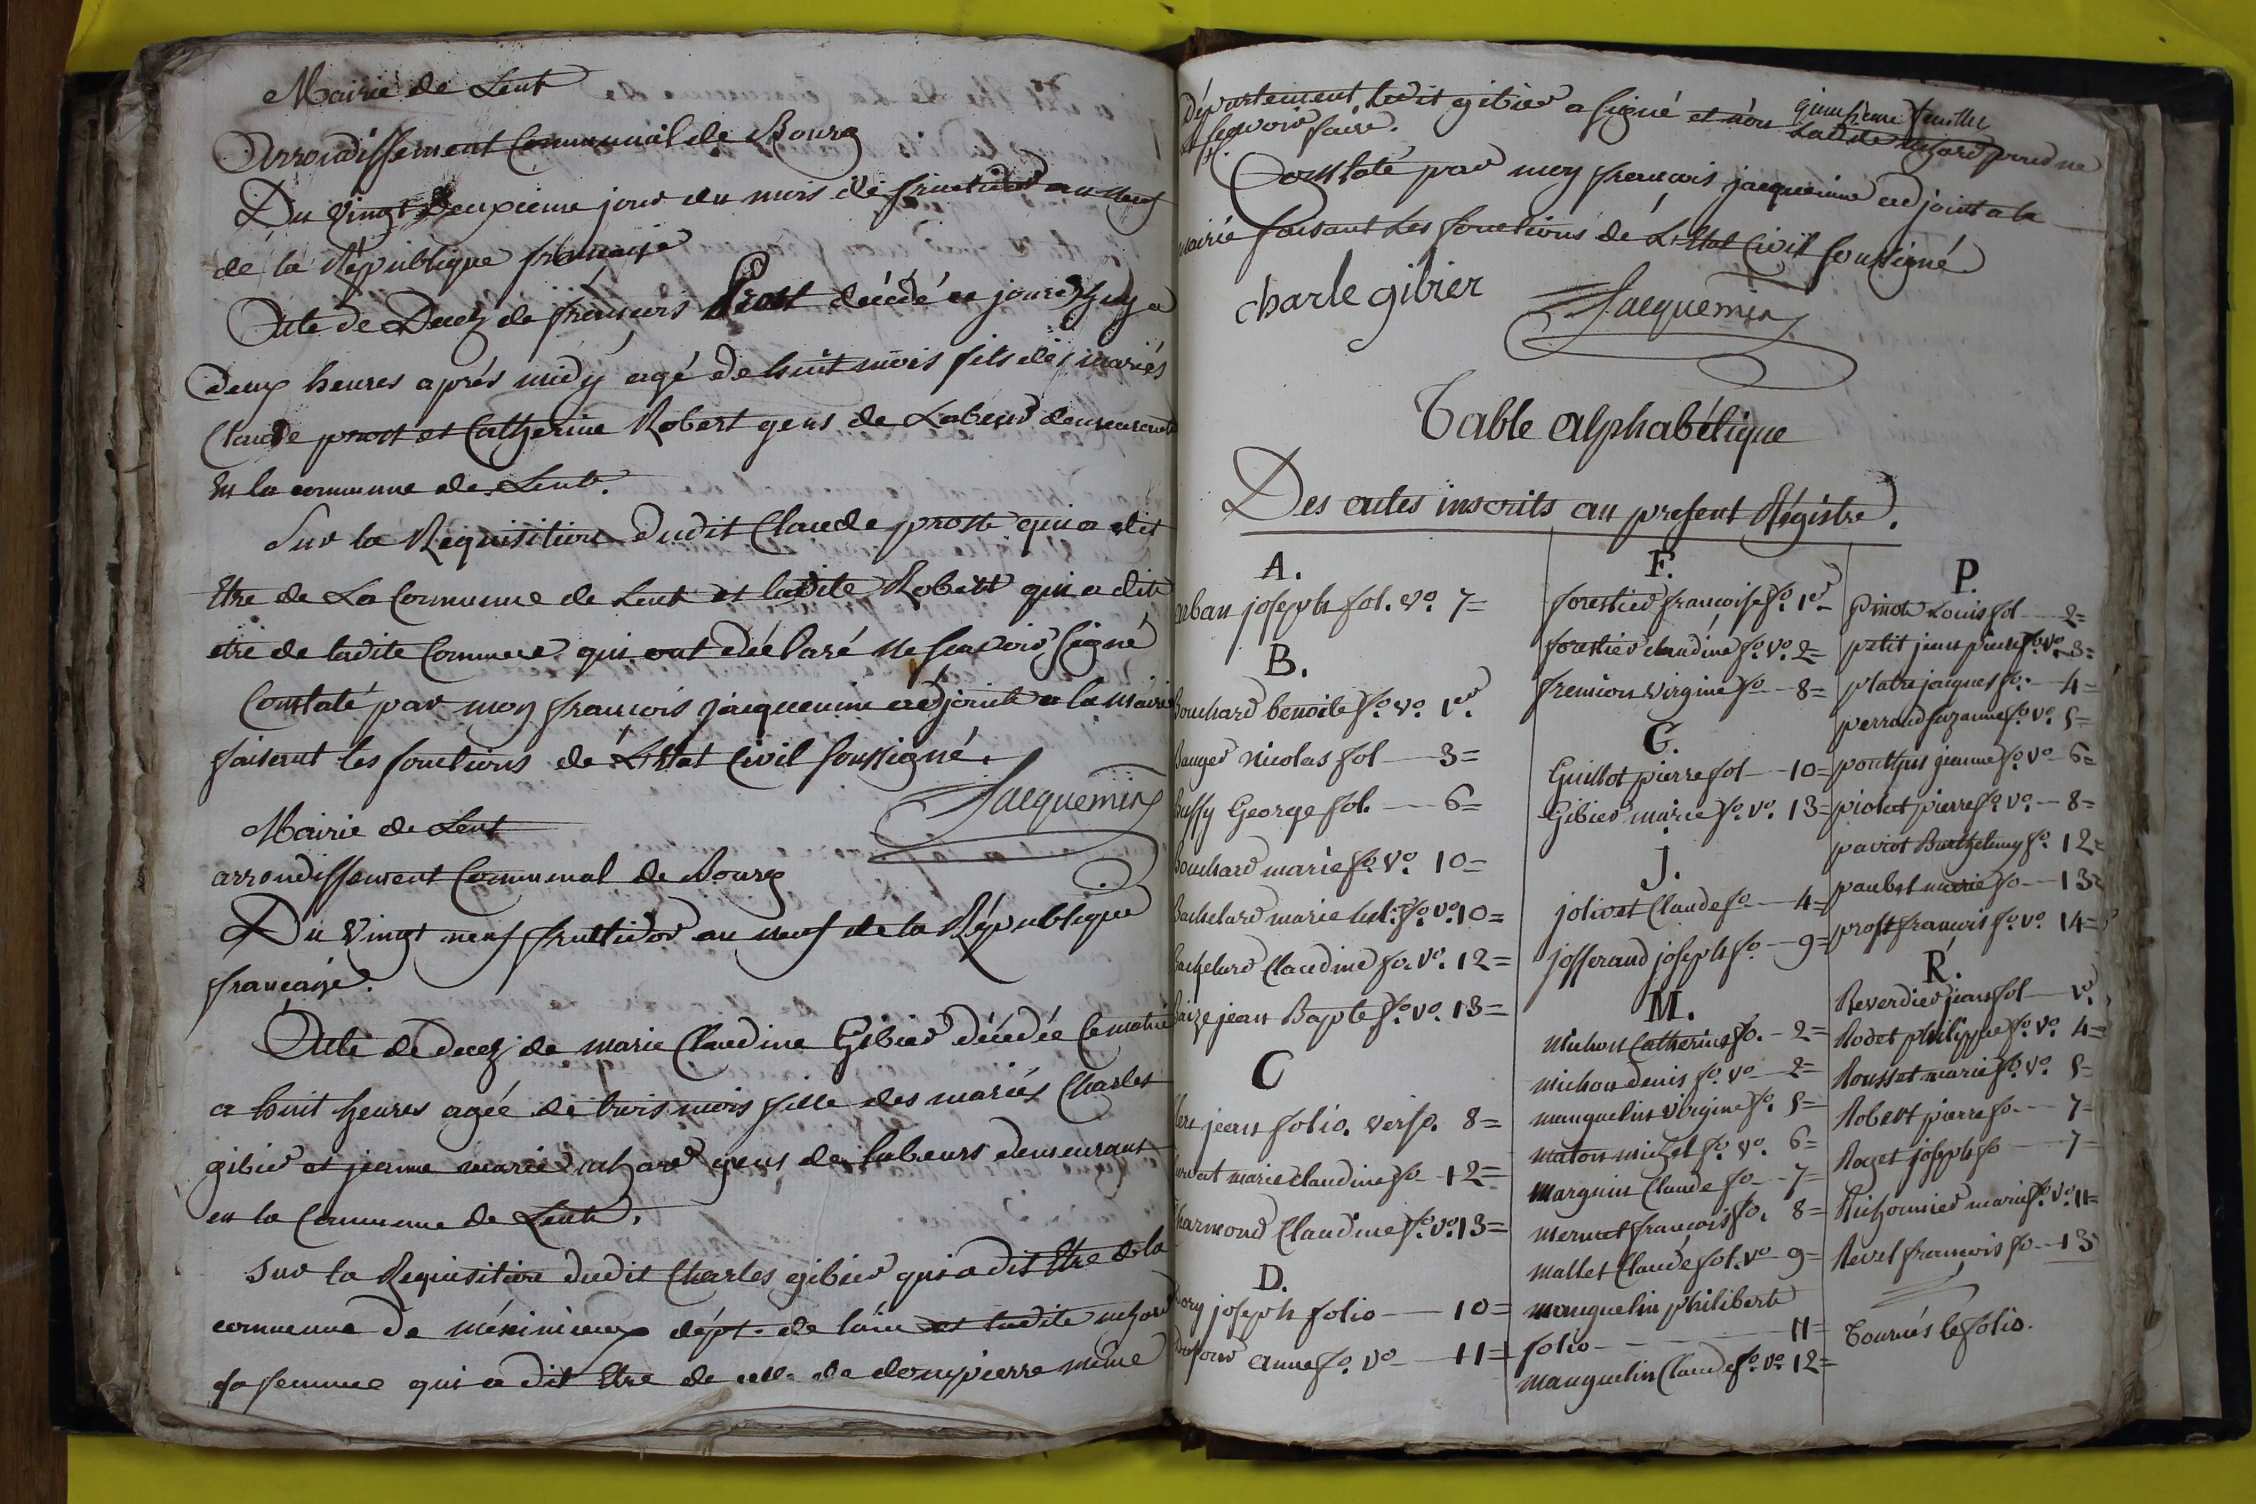 Mairie de Lent
Arrondissement Communal de Bourg
Du Vingt Deuxieme jour du mois de fructidor an neuf
de la République française
Acte de Decez de françois Prost décédé ce jourd'huy a
deux heures aprés midy agé de huit mois fils des mariés
Claude prost et Catherine Robert gens de Labeur demeurant
En la commune de Lent.
Sur la Réquisition dudit Claude prost qui a dit
Etre de La Commune de Lent et ladite Robert qui a dit
etre de ladite Commune qui ont déclaré ne scavoir Signé
Constaté par moy françois jacquemin adjoint a la Mairie
faisant les fonctions de L'Etat Civil soussigné.
Jacquemin
Mairie de Lent
arrondissement Communal de Bourg
Du Vingt neuf fructidor an neuf de la République
française.
Acte de decez de marie Claudine Gibier décédée Ce matin
a huit heures agée de trois mois fille des mariés Charles
gibier et jeanne marie gens de labeurs demeurant
en la Commune de Lent.
Sur la Requisition dudit Charles gibier qui a dit Etre de la
commune de méximieux dépt. de l'ain et ladite
sa femme qui a dit Etre de celle de dompierre même
quinsieme feuillet
Département, ledit gibier a signé et non Ladite pour ne
scavoir faire.
Constaté par moy françois jacquemin adjoint a la
mairie faisant Les fonctions de L'Etat Civil soussigné
charle gibier
Jacquemin
Table Alphabétique
Des actes inscrits au present Régistre.
A.
Urban joseph fol. vo. 7=
B.
Bouchard benoite fo. vo. 1er.
Bauger Nicolas fol — 3=
Buffy George fol. — 6=
Bouchard marie fo. vo. 10=
Bachelard marie fo. vo. 10=
Bachelard Claudine fo. vo. 12=
Baize jean Bapte fo. vo. 13=
C
jean folio. verso. 8=
marie claudine fo — 12=
Charmond Claudine fo. vo. 13=
D.
Dory joseph folio — 10=
Dufour anne fo. vo — 11=
F.
forestier françoise fo. 1er
forestier claudine fo. vo. 2=
fremion virgine fo — 8=
G.
Guillot pierre fol — 10=
Gibier marie fo. vo. 13=
J.
jolivet Claude fo — 4=
josserand joseph fo. — 9=
M.
Michon Catherine fo. — 2=
Michon denis fo. vo — 2=
manguelin virgine fo. 5=
maton michel fo. vo. 6=
Marguin Claude fo — 7=
Mermet françois fo. 8=
Mallet Claude fol. vo — 9=
manguelin philiberte
folio — 11=
manguelin Claude fo. vo. 12=
P.
Pinot Louis fol — 2=
petit jean pierre fo. vo. 3=
platre jacques fo. — 4=
perraud suzanne fo. vo. 5=
jeanne fo. vo — 6=
piolat pierre fo. vo. — 8=
paviot Barthelemy fo. 12=
marie fo — 13=
prost françois fo. vo. 14=
R.
Reverdier jean fol — 1er.
Rodet philippe fo. vo. 4=
Rousset marie fo. vo. 5=
Robert pierre fo. — 7=
Roget joseph fo — 7=
Richonnier marie fo. vo. 11=
Revel françois fo — 13
Tournés le folio.